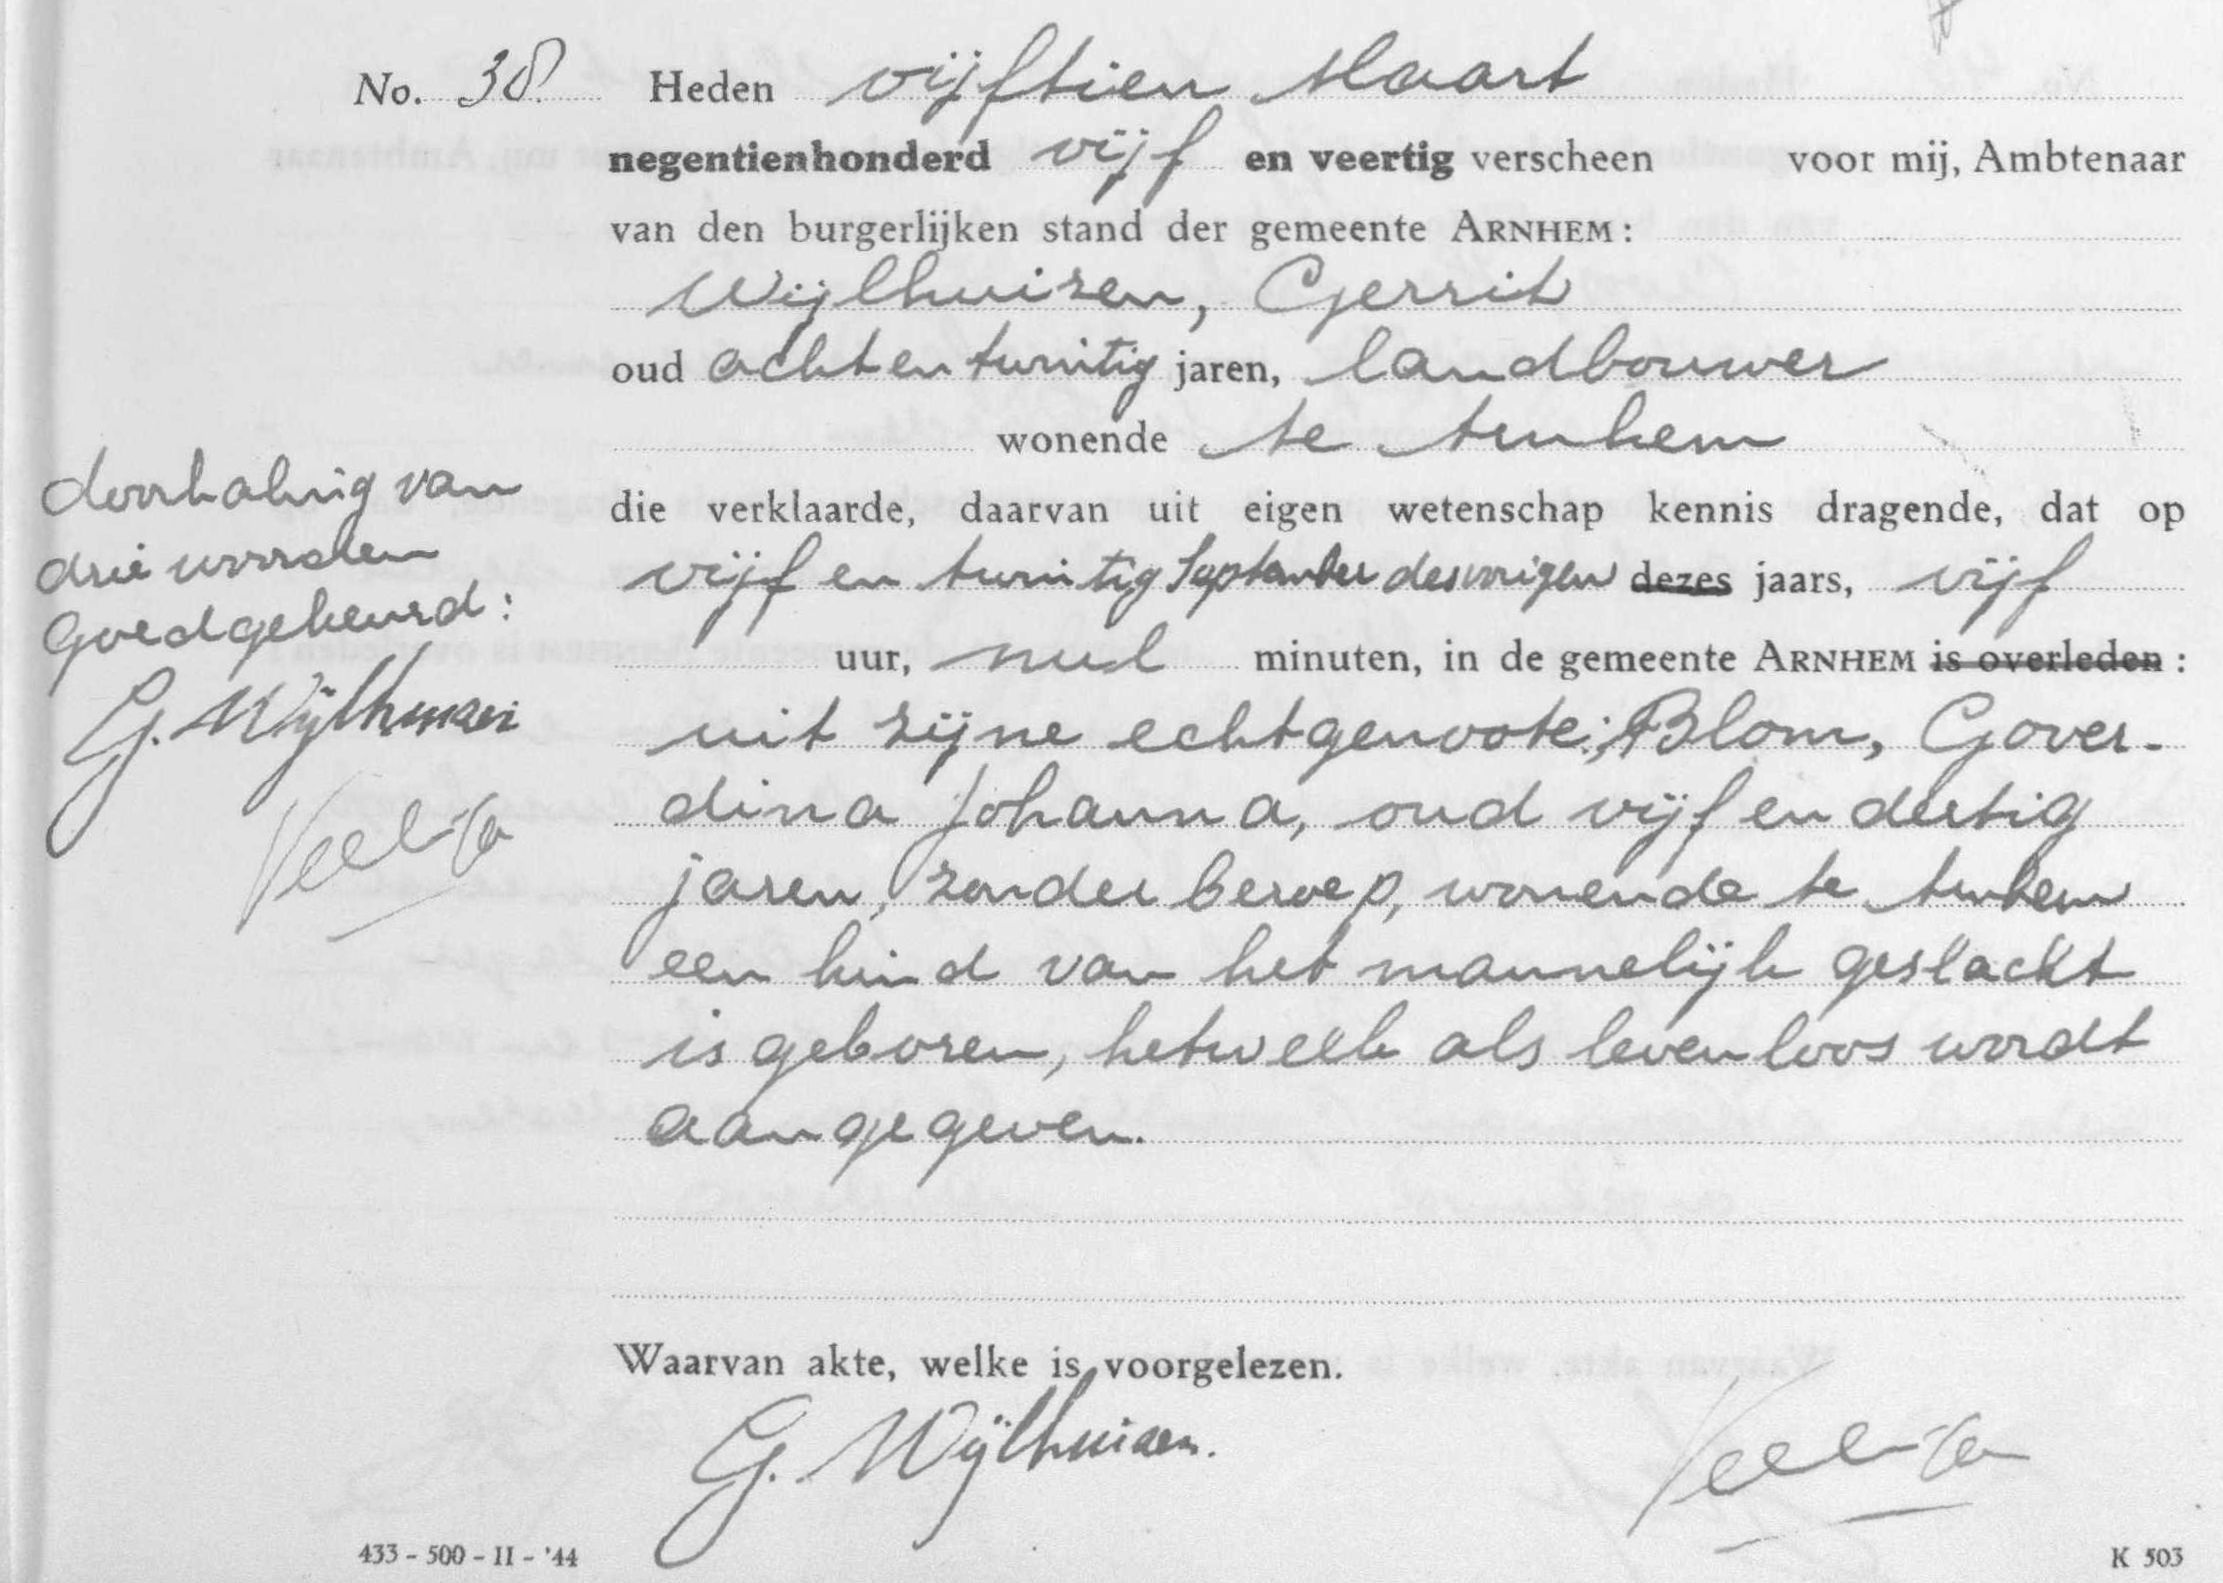 No. 38. Heden vijftien Maart
negentienhonderd vijf en veertig verscheen voor mij, Ambtenaar
van den burgerlijken stand der gemeente ARNHEM:
Wijlhuizen, Gerrit
oud achtentwintig jaren, landbouwer
wonende te Arnhem
die verklaarde, daarvan uit eigen wetenschap kennis dragende, dat op
vijf en twintig September des vorigen dezes jaars, vijf
uur, nul minuten, in de gemeente ARNHEM is overleden:
uit zijne echtgenoote; Blom, Gover-
dina Johanna, oud vijf en dertig
jaren, zonder beroep, wonende te Arnhem
een kind van het mannelijk geslacht
is geboren, hetwelk als levenloos wordt
aangegeven.
doorhaling van
drie woorden
Goedgekeurd:
G. Wijlhuizen
Waarvan akte, welke is voorgelezen.
G. Wijlhuizen.
433 - 500 - II - '44
K 503